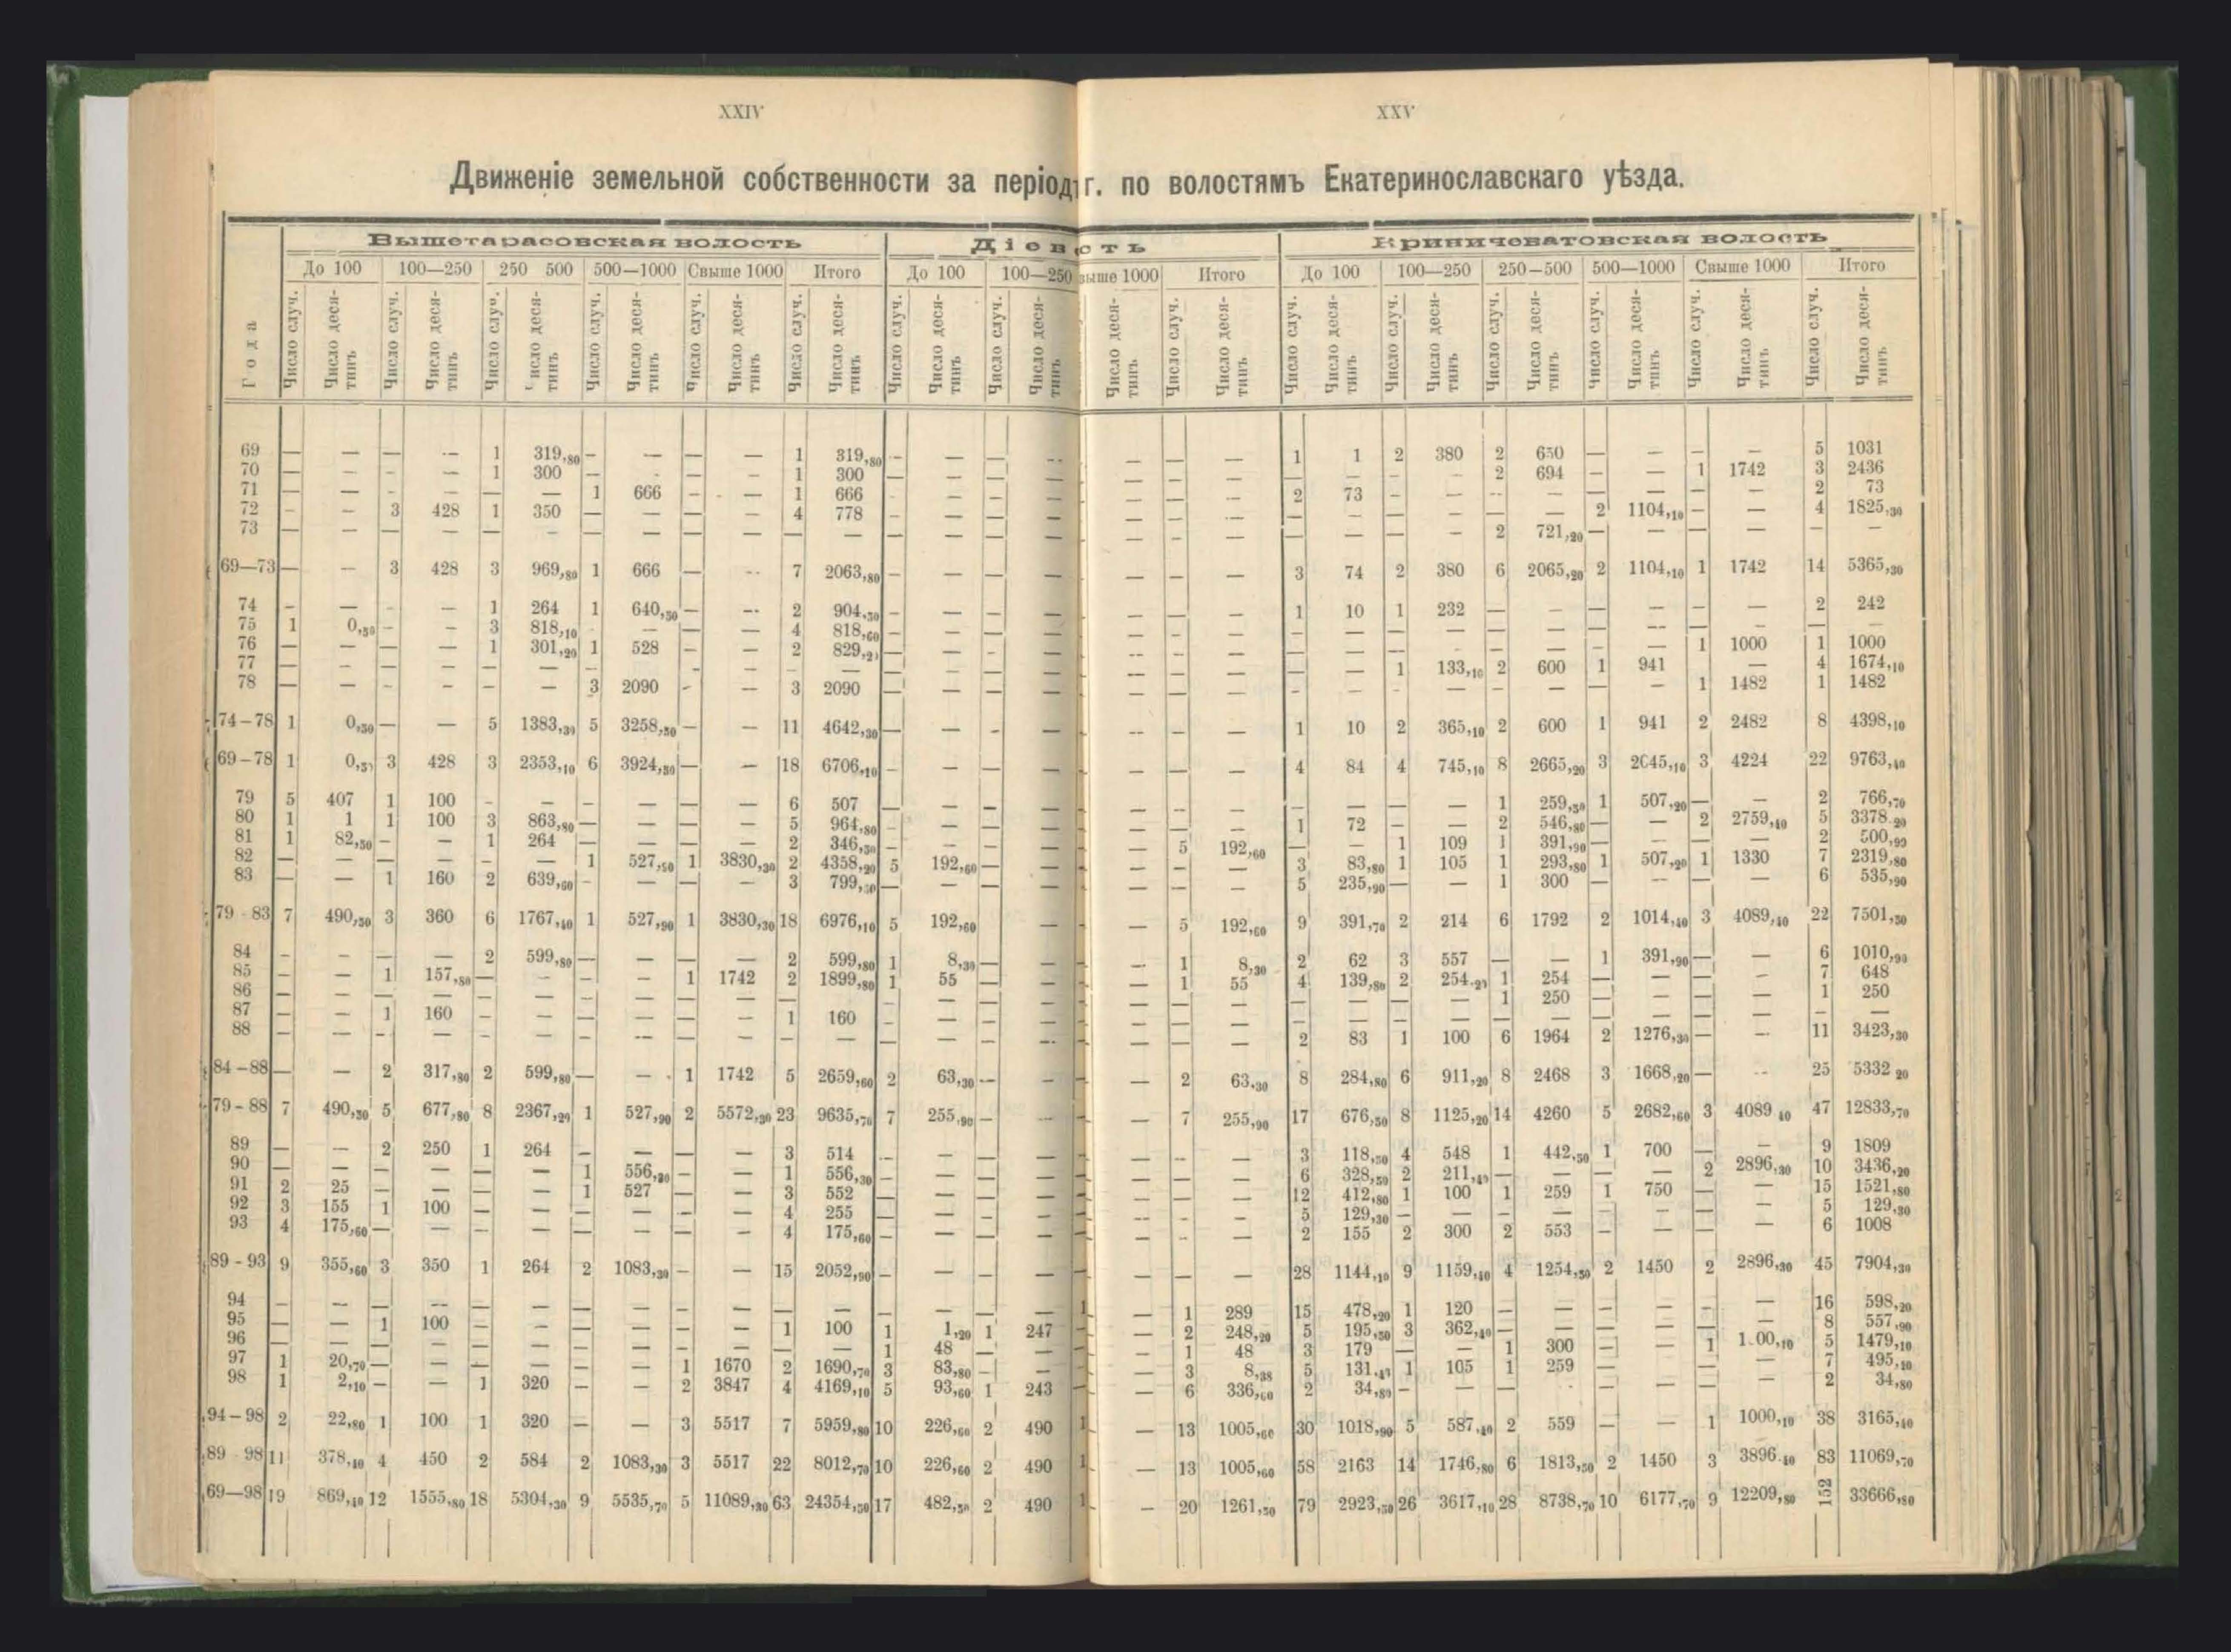 XXIV
XXV
Движеніе земельной собственности за період г. по волостямъ Екатеринославскаго уѣзда.
Вышетарасовская волость Діев сть Криничеватовская волость
До 100 100—250 250 500 500—1000 Свыше 1000 Итого До 100 100—250 выше 1000 Итого До 100 100—250 250—500 500—1000 Свыше 1000 Итого
Года Число случ. Число деся-тинъ. Число случ. Число деся-тинъ. Число случ. Число деся-тинъ. Число случ. Число деся-тинъ. Число случ. Число деся-тинъ. Число случ. Число деся-тинъ. Число случ. Число деся-тинъ. Число случ. Число деся-тинъ. Число деся-тинъ. Число случ. Число деся-тинъ. Число случ. Число деся-тинъ. Число случ. Число деся-тинъ. Число случ. Число деся-тинъ. Число случ. Число деся-тинъ. Число случ. Число деся-тинъ. Число случ. Число деся-тинъ.
69 — — — — 1 319,80 — — — — 1 319,80 — — — — — — — 1 1 2 380 2 650 — — — — 5 1031
70 — — — — 1 300 — — — — 1 300 — — — — — — — — — — — 2 694 — — 1 1742 3 2436
71 — — — — — — 1 666 — — 1 666 — — — — — — — 2 73 — — — — — — — — 2 73
72 — — 3 428 1 350 — — — — 4 778 — — — — — — — — — — — — — 2 1104,10 — — 4 1825,30
73 — — — — — — — — — — — — — — — — — — — — — — — 2 721,20 — — — — — —
69—73 — — 3 428 3 969,80 1 666 — — 7 2063,80 — — — — — — — 3 74 2 380 6 2065,20 2 1104,10 1 1742 14 5365,30
74 — — — — 1 264 1 640,30 — — 2 904,30 — — — — — — — 1 10 1 232 — — — — — — 2 242
75 1 0,50 — — 3 818,10 — — — — 4 818,60 — — — — — — — — — — — — — — — — — — —
76 — — — — 1 301,20 1 528 — — 2 829,2 — — — — — — — — — — — — — — — 1 1000 1 1000
77 — — — — — — — — — — — — — — — — — — — — — 1 133,10 2 600 1 941 — — 4 1674,10
78 — — — — — — 3 2090 — — 3 2090 — — — — — — — — — — — — — — — 1 1482 1 1482
74—78 1 0,50 — — 5 1383,30 5 3258,50 — — 11 4642,30 — — — — — — — 1 10 2 365,10 2 600 1 941 2 2482 8 4398,10
69—78 1 0,5 3 428 3 2353,10 6 3924,50 — — 18 6706,10 — — — — — — — 4 84 4 745,10 8 2665,20 3 2045,10 3 4224 22 9763,40
79 5 407 1 100 — — — — — — 6 507 — — — — — — — — — — — 1 259,50 1 507,20 — — 2 766,70
80 1 1 1 100 3 863,80 — — — — 5 964,80 — — — — — — — 1 72 — — 2 546,80 — — 2 2759,40 5 3378,20
81 1 82,50 — — 1 264 — — — — 2 346,50 — — — — — 5 192,60 — — 1 109 1 391,90 — — — — 2 500,90
82 — — — — — — 1 527,90 1 3830,30 2 4358,20 5 192,60 — — — — — 3 83,80 1 105 1 293,80 1 507,20 1 1330 7 2319,80
83 — — 1 160 2 639,60 — — — — 3 799,60 — — — — — — — 5 235,90 — — 1 300 — — — — 6 535,90
79 - 83 7 490,50 3 360 6 1767,40 1 527,90 1 3830,30 18 6976,10 5 192,60 — — — 5 192,60 9 391,70 2 214 6 1792 2 1014,40 3 4089,40 22 7501,50
84 — — — — 2 599,80 — — — — 2 599,80 1 8,30 — — — 1 8,30 2 62 3 557 — — 1 391,90 — — 6 1010,90
85 — — 1 157,80 — — — — 1 1742 2 1899,80 1 55 — — — 1 55 4 139,80 2 254,2 1 254 — — — — 7 648
86 — — — — — — — — — — — — — — — — — — — — — — — 1 250 — — — — 1 250
87 — — 1 160 — — — — — — 1 160 — — — — — — — — — — — — — — — — — — —
88 — — — — — — — — — — — — — — — — — — — 2 83 1 100 6 1964 2 1276,30 — — 11 3423,30
84—88 — — 2 317,80 2 599,80 — — 1 1742 5 2659,60 2 63,30 — — — 2 63,30 8 284,80 6 911,20 8 2468 3 1668,20 — — 25 5332 20
79—88 7 490,50 5 677,80 8 2367,20 1 527,90 2 5572,30 23 9635,70 7 255,90 — — — 7 255,90 17 676,50 8 1125,20 14 4260 5 2682,60 3 4089 40 47 12833,70
89 — — 2 250 1 264 — — — — 3 514 — — — — — — — 3 118,50 4 548 1 442,50 1 700 — — 9 1809
90 — — — — — — 1 556,30 — — 1 556,30 — — — — — — — 6 328,50 2 211,40 — — — — 2 2896,30 10 3436,20
91 2 25 — — — — 1 527 — — 3 552 — — — — — — — 12 412,80 1 100 1 259 1 750 — — 15 1521,80
92 3 155 1 100 — — — — — — 4 255 — — — — — — — 5 129,30 — — — — — — — — 5 129,30
93 4 175,60 — — — — — — — — 4 175,60 — — — — — — — 2 155 2 300 2 553 — — — — 6 1008
89 - 93 9 355,60 3 350 1 264 2 1083,30 — — 15 2052,90 — — — — — — — 28 1144,10 9 1159,40 4 1254,50 2 1450 2 2896,30 45 7904,30
94 — — — — — — — — — — — — — — — — — 1 289 15 478,20 1 120 — — — — — — 16 598,20
95 — — 1 100 — — — — — — 1 100 1 1,20 1 247 — 2 248,20 5 195,50 3 362,40 — — — — — — 8 557,90
96 — — — — — — — — — — — — 1 48 — — — 1 48 3 179 — — 1 300 — — 1 1.00,10 5 1479,10
97 1 20,70 — — — — — — 1 1670 2 1690,70 3 83,80 — — — 3 8,38 5 131,4 1 105 1 259 — — — — 7 495,40
98 1 2,10 — — 1 320 — — 2 3847 4 4169,10 5 93,60 1 243 — 6 336,60 2 34,80 — — — — — — — — 2 34,80
94—98 2 22,80 1 100 1 320 — — 3 5517 7 5959,80 10 226,60 2 490 — 13 1005,60 30 1018,90 5 587,40 2 559 — — 1 1000,10 38 3165,40
89 98 11 378,40 4 450 2 584 2 1083,30 3 5517 22 8012,70 10 226,60 2 490 — 13 1005,60 58 2163 14 1746,80 6 1813,50 2 1450 3 3896,40 83 11069,70
69—98 19 869,40 12 1555,80 18 5304,30 9 5535,70 5 11089,30 63 24354,50 17 482,50 2 490 — 20 1261,50 79 2923,50 26 3617,10 28 8738,70 10 6177,70 9 12209,80 152 33666,80